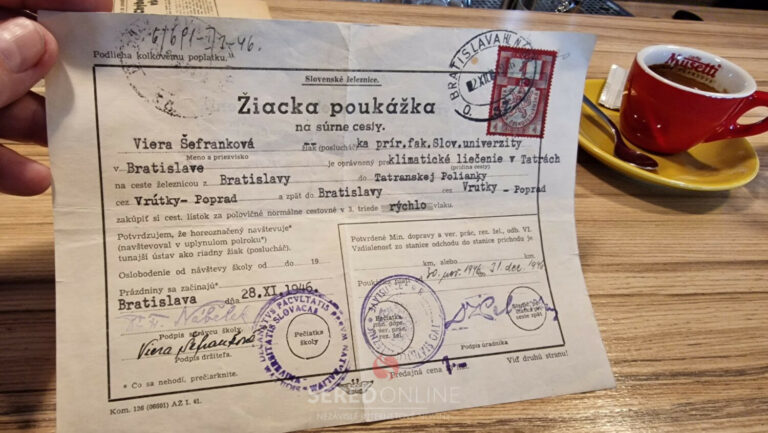 6/691-I/1-46.
Podlieha kolkovému poplatku.
BRATISLAVA HL. N
Slovenské železnice.
Žiacka poukážka
na súrne cesty.
Viera Šefranková žiak (poslucháč) ka prír.fak.Slov.univerzity
Meno a priezvisko
v Bratislave je oprávnený pre klimatické liečenie v Tatrách
(príčina cesty)
na ceste železnicou z Bratislavy do Tatranskej Polianky
cez Vrútky- Poprad a zpät do Bratislavy cez Vrutky - Poprad
zakúpiť si cest. lístok za polovičné normálne cestovné v 3. triede rýchlo vlaku.
Potvrdzujem, že horeoznačený navštevuje*
(navštevoval v uplynulom polroku)*
tunajší ústav ako riadny žiak (poslucháč).
Oslobodenie od návštevy školy od do 19
Prázdniny sa začínajú
Bratislava dňa 28.XI.1946
Podpis správcu školy.
Viera Šefranková
Podpis držiteľa.
* Čo sa nehodí, prečiarknite.
Pečiatka
školy
UNIVERSITATIS SLOVACAE
Potvrdené Min. dopravy a ver. prác, rez. žel., odb. VI.
Vzdialenosť zo stanice odchodu do stanice príchodu je
km, alebo km.
30. nov. 1946 31 dec. 1946
Pečiatka
Podpis úradníka
Predajná cena 1
Viď druhú stranu!
Kom. 126 (06601) AŽ I. 41.
Musetti
SEREDONLINE